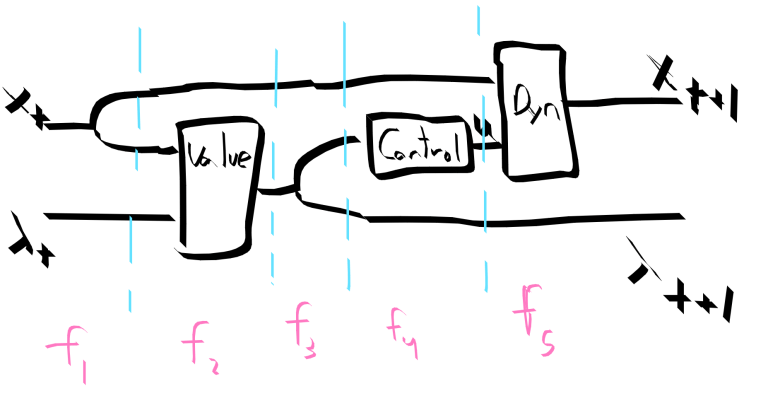 x_t
Value
Control
u
Dyn
x_{t+1}
λ_t
λ_{t+1}
f_1
f_2
f_3
f_4
f_5